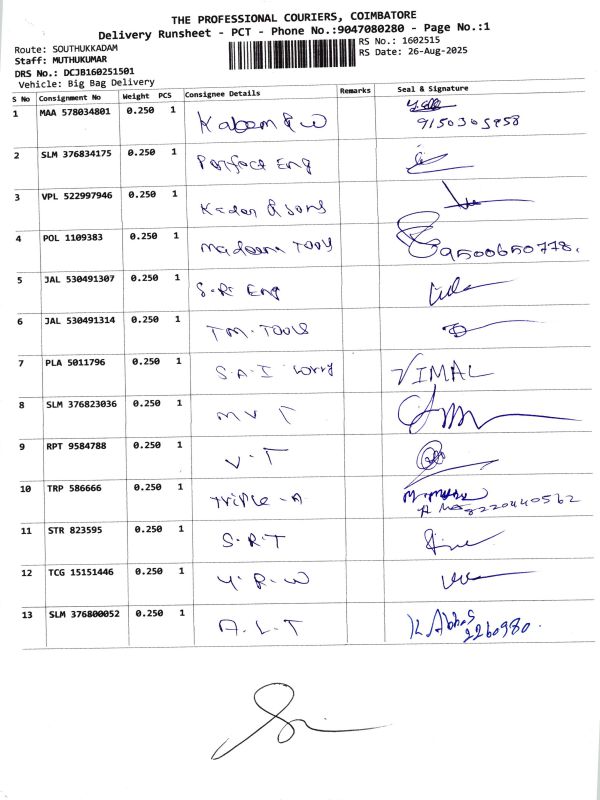 THE PROFESSIONAL COURIERS, COIMBATORE
Delivery Runsheet - PCT - Phone No.:9047080280 - Page No.:1
Route: SOUTHUKKADAM
RS No.: 1602515
Staff: MUTHUKUMAR
RS Date: 26-Aug-2025
DRS No.: DCJB160251501
Vehicle: Big Bag Delivery
S No Consignment No Weight PCS Consignee Details Remarks Seal & Signature
1 MAA 578034801 0.250 1
9150305958
2 SLM 376834175 0.250 1 Perfect Eng
3 VPL 522997946 0.250 1 Kadar & Sons
4 POL 1109383 0.250 1 Madeena Tools 9500650778.
5 JAL 530491307 0.250 1 S.R. Eng
6 JAL 530491314 0.250 1 TM. TOOLS
7 PLA 5011796 0.250 1 S.A.I lorry VIMAL
8 SLM 376823036 0.250 1 M V T
9 RPT 9584788 0.250 1 V.T
10 TRP 586666 0.250 1 TRIPLE -A
8220440562
11 STR 823595 0.250 1 S.R.T
12 TCG 15151446 0.250 1 Y.R.W
13 SLM 376800052 0.250 1 A.L.T K Abbas
2260980.